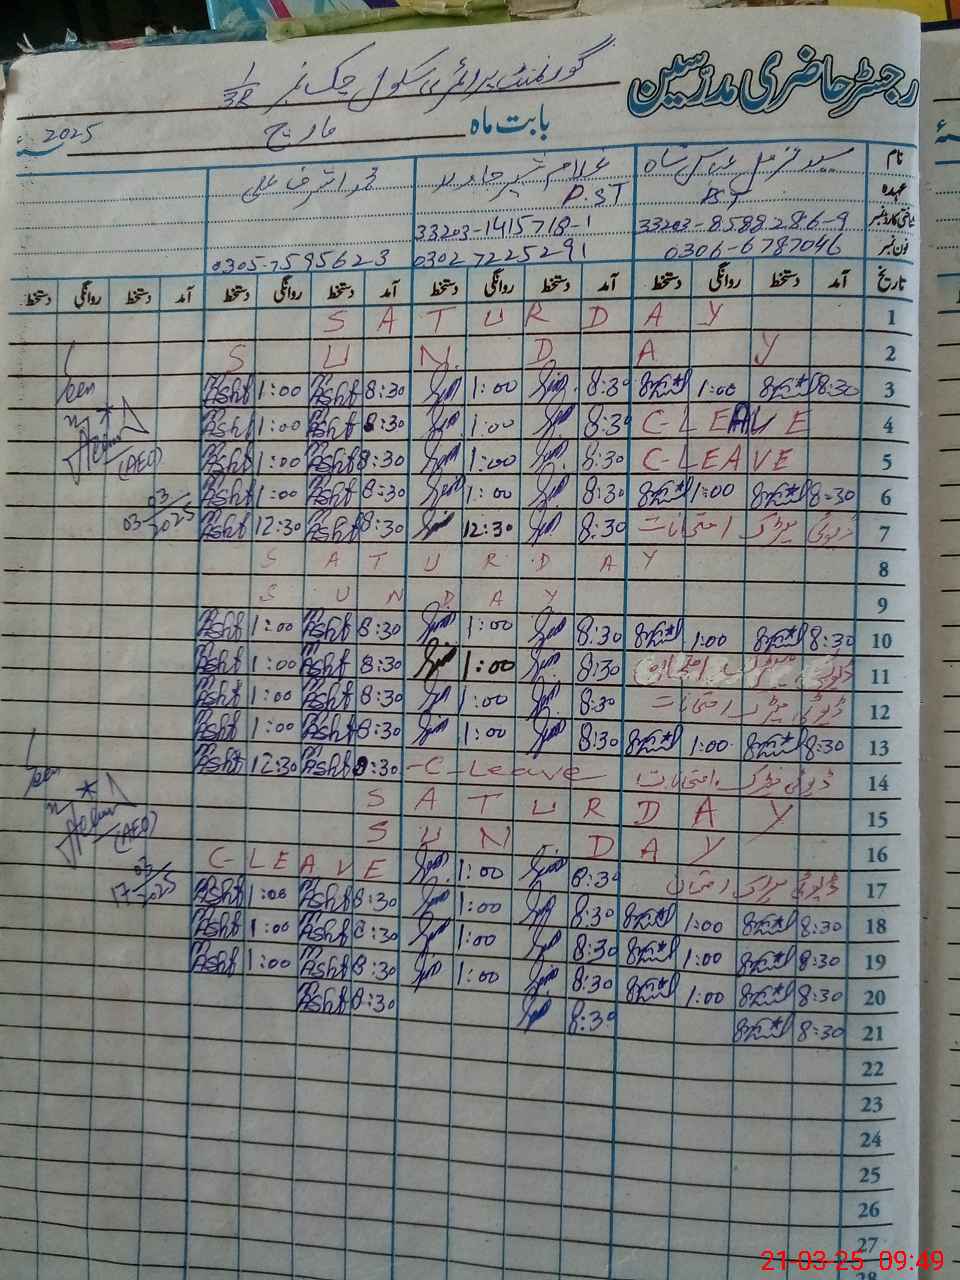 رجسٹر حاضری مدرسین
گورنمنٹ پرائمری سکول چک نمبر 1/3R
بابت ماہ مارچ 2025
نام سید مزمل عباس شاہ غلام شبر حامد محمد اشرف علی
عہدہ PST P.ST
شناختی کارڈ نمبر 33203-8588286-9 33203-1415718-1
فون نمبر 0306-6787046 03027225291 0305-7595623
تاریخ آمد دستخط روانگی دستخط آمد دستخط روانگی دستخط آمد دستخط روانگی دستخط آمد دستخط روانگی دستخط
1 SATURDAY
2 SUNDAY
3 8:30 1:00 8:30 1:00 8:30 Ashf 1:00 Ashf
4 C-LEAVE 8:30 1:00 8:30 Ashf 1:00 Ashf
5 C-LEAVE 8:30 1:00 8:30 Ashf 1:00 Ashf
(AEO)
6 8:30 1:00 8:30 1:00 8:30 Ashf 1:00 Ashf
03/03/2025
7 ڈیوٹی میٹرک امتحانات 8:30 12:30 8:30 Ashf 12:30 Ashf
8 SATURDAY
9 SUNDAY
10 8:30 1:00 8:30 1:00 8:30 Ashf 1:00 Ashf
11 ڈیوٹی میٹرک امتحانات 8:30 1:00 8:30 Ashf 1:00 Ashf
12 ڈیوٹی میٹرک امتحانات 8:30 1:00 8:30 Ashf 1:00 Ashf
13 8:30 1:00 8:30 1:00 8:30 Ashf 1:00 Ashf
14 ڈیوٹی میٹرک امتحانات C-Leave 8:30 Ashf 12:30 Ashf
15 SATURDAY
(AEO)
16 SUNDAY
17 ڈیوٹی میٹرک امتحان 8:30 1:00 C-LEAVE
17/03/2025
18 8:30 1:00 8:30 1:00 8:30 Ashf 1:00 Ashf
19 8:30 1:00 8:30 1:00 8:30 Ashf 1:00 Ashf
20 8:30 1:00 8:30 1:00 8:30 Ashf 1:00 Ashf
21 8:30 8:30 8:30 Ashf
22
23
24
25
26
27
28
21-03-25 09:49